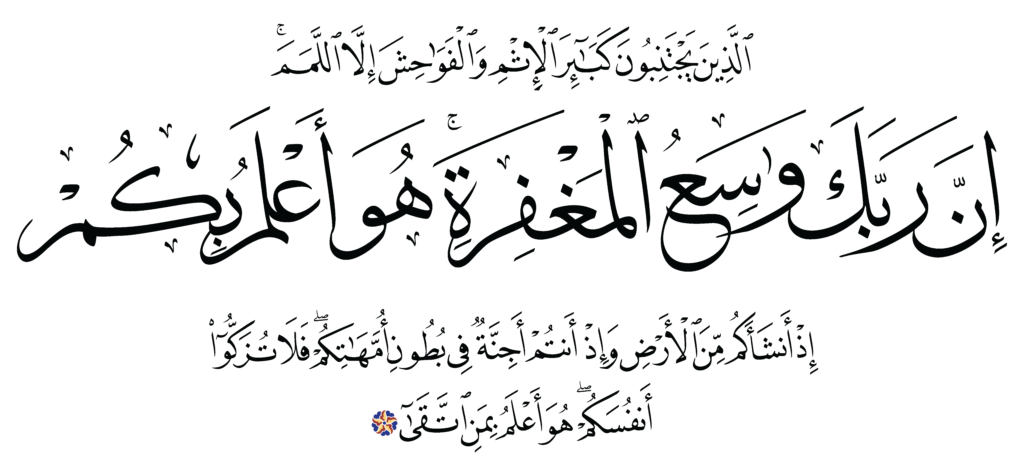 ٱلَّذِينَ يَجْتَنِبُونَ كَبَٰٓئِرَ ٱلْإِثْمِ وَٱلْفَوَٰحِشَ إِلَّا ٱللَّمَمَ ۚ
إِنَّ رَبَّكَ وَٰسِعُ ٱلْمَغْفِرَةِ ۚ هُوَ أَعْلَمُ بِكُمْ
إِذْ أَنشَأَكُم مِّنَ ٱلْأَرْضِ وَإِذْ أَنتُمْ أَجِنَّةٌ فِى بُطُونِ أُمَّهَٰتِكُمْ ۖ فَلَا تُزَكُّوٓا۟
أَنفُسَكُمْ ۖ هُوَ أَعْلَمُ بِمَنِ ٱتَّقَىٰٓ